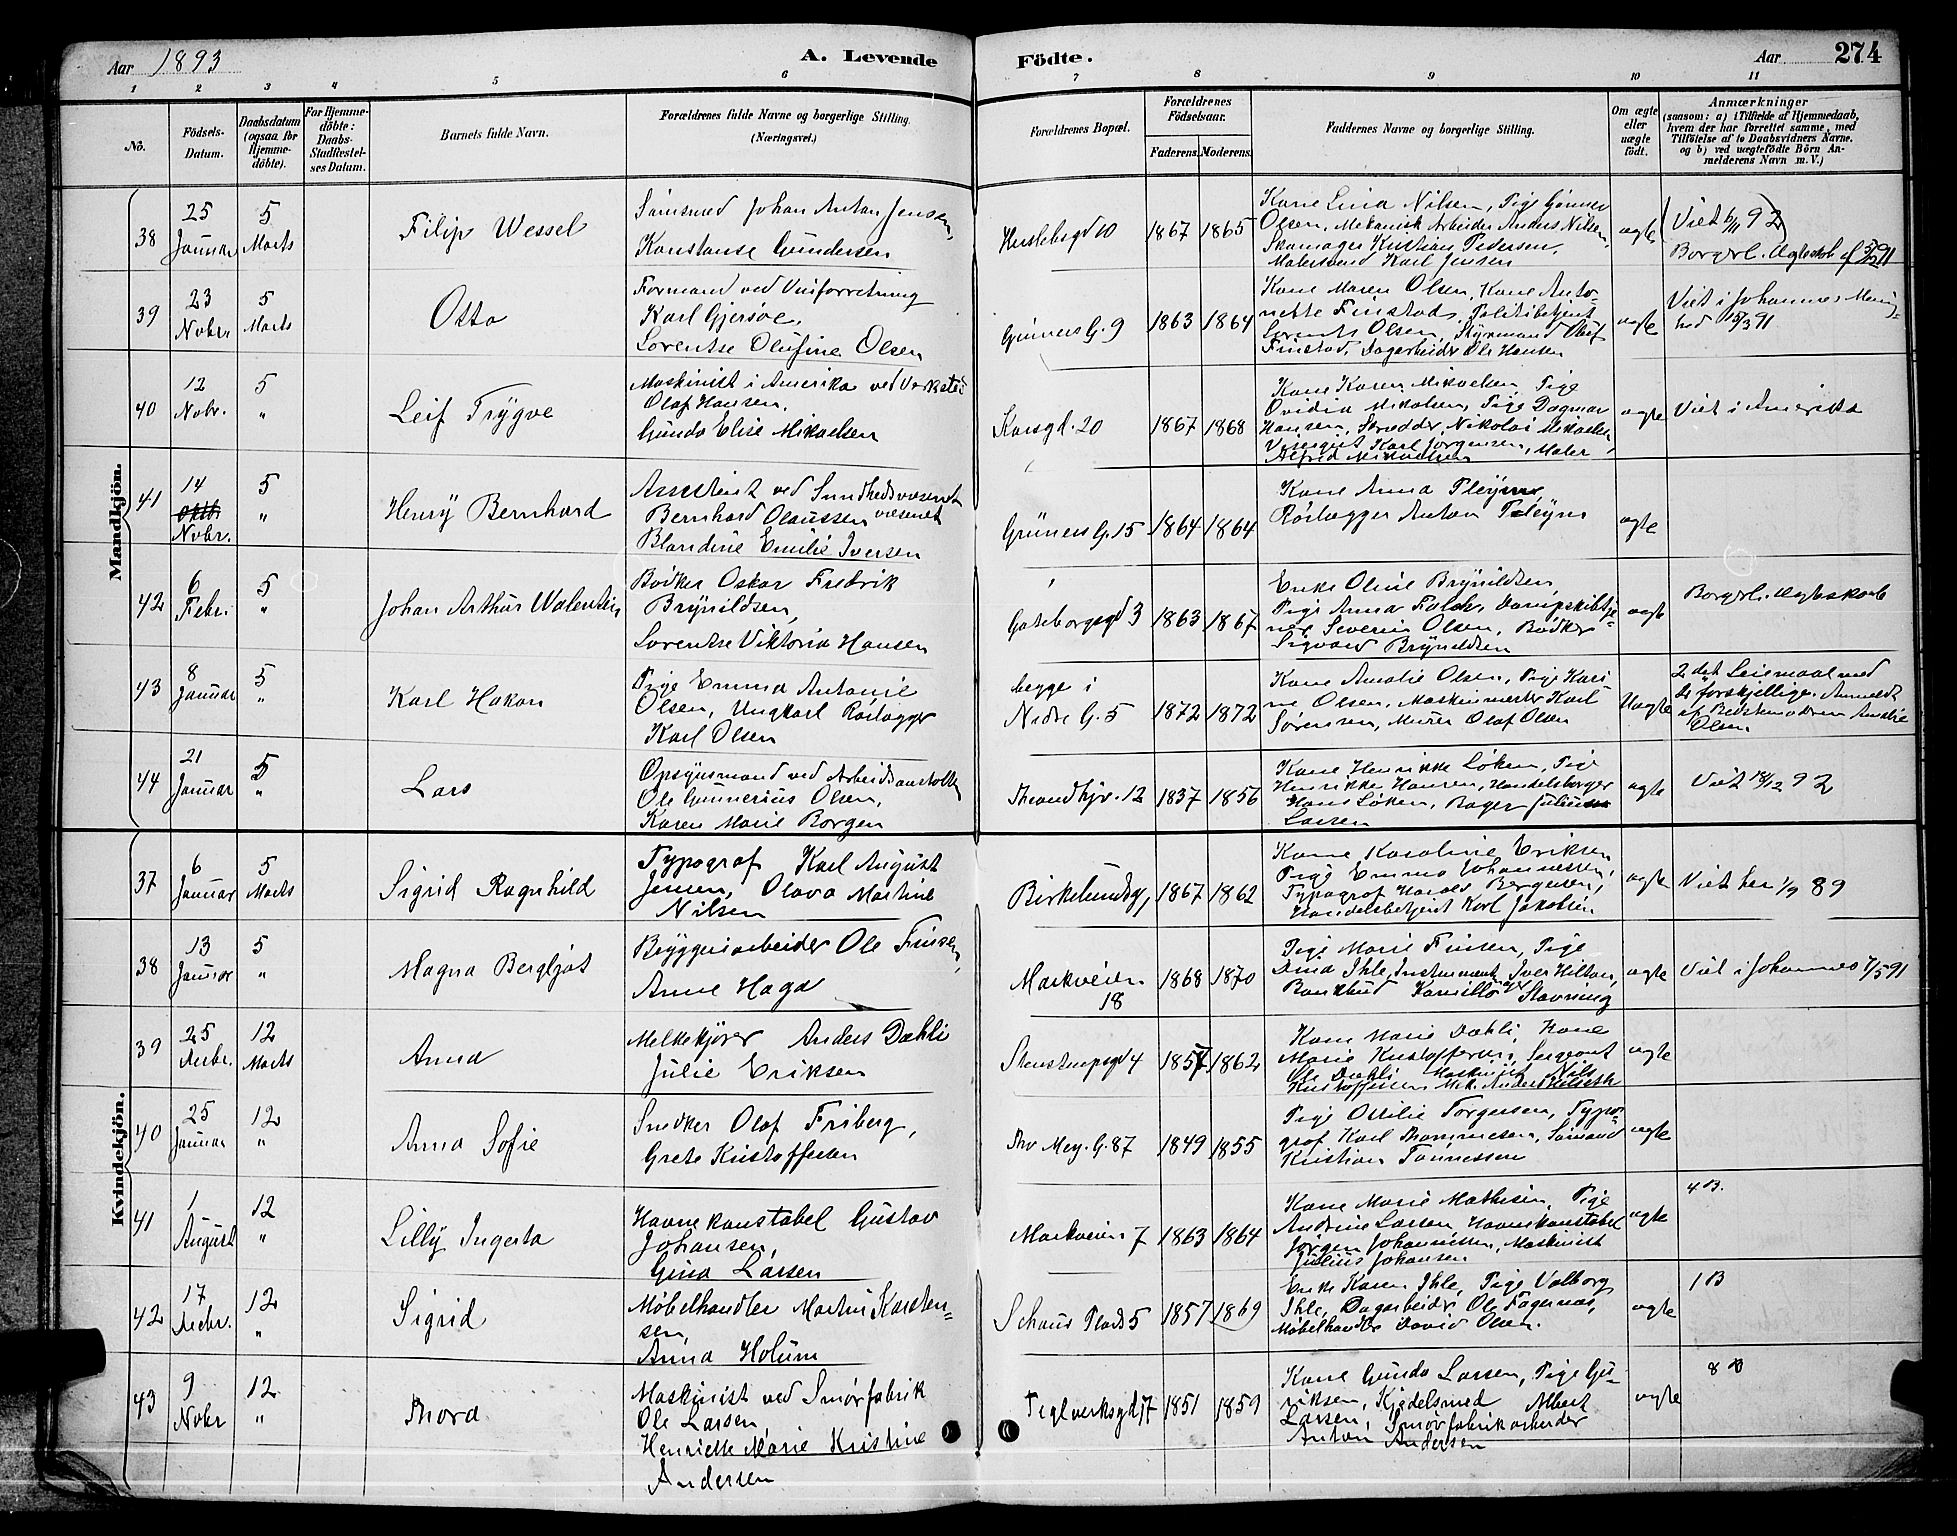 Aar 1893
A. Levende
Födte.
Aar
274
1 2 3 4 5 6 7 8 9 10 11
No.
Födsels-Datum.
Daabsdatum (ogsaa for Hjemme-döbte).
For Hjemme-döbte: Daabs-Stadfæstel-ses Datum.
Barnets fulde Navn.
Forældrenes fulde Navne og borgerlige Stilling. (Næringsvei.)
Forældrenes Bopæl.
Forældrenes Födselsaar.
Faderens. Moderens.
Faddernes Navne og borgerlige Stilling.
Om ægte eller uægte födt.
Anmærkninger
(saasom: a) i Tilfælde af Hjemmedaab, hvem der har forrettet samme, med Tilföielse af to Daabsvidners Navne. og b) ved uægtefödte Börn An-melderens Navn m. V.)
Mandkjön.
38 25 Januar 5 Marts Filip Wessel
Johan Anton Jensen,
Konstanse Gundersen
10 1867 1865
Kone Lina Nilsen, Pige
Olsen, Mekanisk Arbeider Anders Nilsen,
Skomager Kristian Pedersen,
Malersvend Karl Jensen
ægte
Viet 92
Borgerl.
39 23 Nobr. 5 Marts Otto
Formand ved Vinforretning
Karl Gjersøe,
Lorentse Olufine Olsen
Grüners G. 9 1863 1864
Kone Maren Olsen, Kone Anto-
nette Finstad, Politibetjent
Lorents Olsen, Styrmand Oluf
Finstad, Dagarbeider Ole Hansen
ægte
Viet i Johannes Menig-
hed 91
40 12 Nobr. 5 " Leif Trygve
Maskinist i Amerika ved Værksted
Olaf Hansen,
Gunda Elise Mikaelsen
Korsgd. 20 1867 1868
Kone Karen Mikaelsen, Pige
Ovidia Mikalsen, Pige Dagmar
Hansen, Skrædder Nikolai Mikaelsen,
Visergut Karl Jørgensen, Maler
Alfred Mikaelsen
ægte
Viet i Amerika
41 14 Oktb. Nobr. 5 " Henry Bernhard
Assistent ved Sundhedsvæsenet
Bernhard Olaussen væsenet
Blandine Emilie Iversen
Grüners G. 15 1864 1864
Kone Anna Pleym
Rørlægger Anton Pleym
ægte
42 6 Febr. 5 " Johan Arthur Walentin
Bødker Oskar Fredrik
Brynildsen,
Lorentse Viktoria Hansen
Gøteborgsgd 3 1863 1867
Enke Oline Brynildsen,
Pige Anna Falch, Dampskibstje-
ner Severin Olsen, Bødker
Sigvard Brynildsen
ægte
Borgerl. Ægteskab
43 8 Januar 5 " Karl Hakon
Pige Emma Antonie
Olsen, Ungkarl Rørlægger
Karl Olsen
begge i
Nedre G. 5 1872 1872
Kone Amalie Olsen, Pige Kari-
ne Olsen, Maskinmester Karl
Sørensen, Murer Olaf Olsen
Uægte
2 det Leiermaal med
forskjellige. Anmeldt
af Bedstemoderen Amalie
Olsen
44 21 Januar 5 " Lars
Opsynsmand ved Arbeidsanstalten
Ole Gunnerius Olsen,
Karen Marie Borgen
Trondhjv. 12 1837 1856
Kone Henrikke Løken, Pige
Henrikke Hansen, Handelsborger
Hans Løken, Bager Julius
Larsen
ægte
Viet 18/12 92
Kvindekjön.
37 6 Januar 5 Marts Sigrid Ragnhild
Typograf Karl August
Jensen, Olava Martine
Nilsen
Birkelundsg, 1867 1862
Kone Karoline Eriksen,
Pige Emma Johannessen,
Typograf Harald Bergersen,
Handelsbetjent Karl Jakobsen
ægte
Viet her 1/9 89
38 13 Januar 5 " Magna Bergljot
Bryggeriarbeider Ole Finsen,
Anne Haga
Markveien
18 1868 1870
Pige Marie Finsen, Pige
Dina Ihle, Instrument. Iver Hilton,
Bankbud Kamillo Stavning
ægte
Viet i Johannes 7/5 91
39 25 Decbr. 12 Marts Anna
Melkekjører Anders Dæhli
Julie Eriksen
Stenstrupsgd 4 1857 1862
Kone Marie Dæhli, Kone
Marie Kristoffersen, Sergeant
Ole Dæhli, Maskinist Nils
Kristoffersen
ægte
40 25 Januar 12 " Anna Sofie
Snedker Olaf Friberg,
Grete Kristoffersen
Thv Mey. G. 87 1849 1855
Pige Ottilie Torgersen, Typo-
graf Karl Thommesen, Sømand
Kristian Tønnessen
ægte
41 1 August 12 " Lilly Ingerta
Havnekonstabel Gustav
Johansen,
Gina Larsen
Markveien 7 1863 1864
Kone Marie Mathisen, Pige
Andrine Larsen, Havnekonstabel
Jørgen Johannessen, Maskinist
Julius Johansen
ægte
4 B.
42 17 Decbr. 12 " Sigrid
Møbelhandler Martin Karsten-
sen,
Anna Holum
Schous Plads 5 1857 1869
Enke Karen Ihle, Pige Valborg
Ihle, Dagarbeider Ole Fagernæs,
Møbelhandler David Olsen.
ægte
1 B
43 9 Nobr 12 " Thora
Maskinist ved Smørfabrik
Ole Larsen
Henriette Marie Kristine
Andersen
Teglverksgd 17 1851 1859
Kone Gunda Larsen, Pige
Kjedelsmed Albert
Larsen, Smørfabrikarbeider
Anton Andersen
ægte
8 B